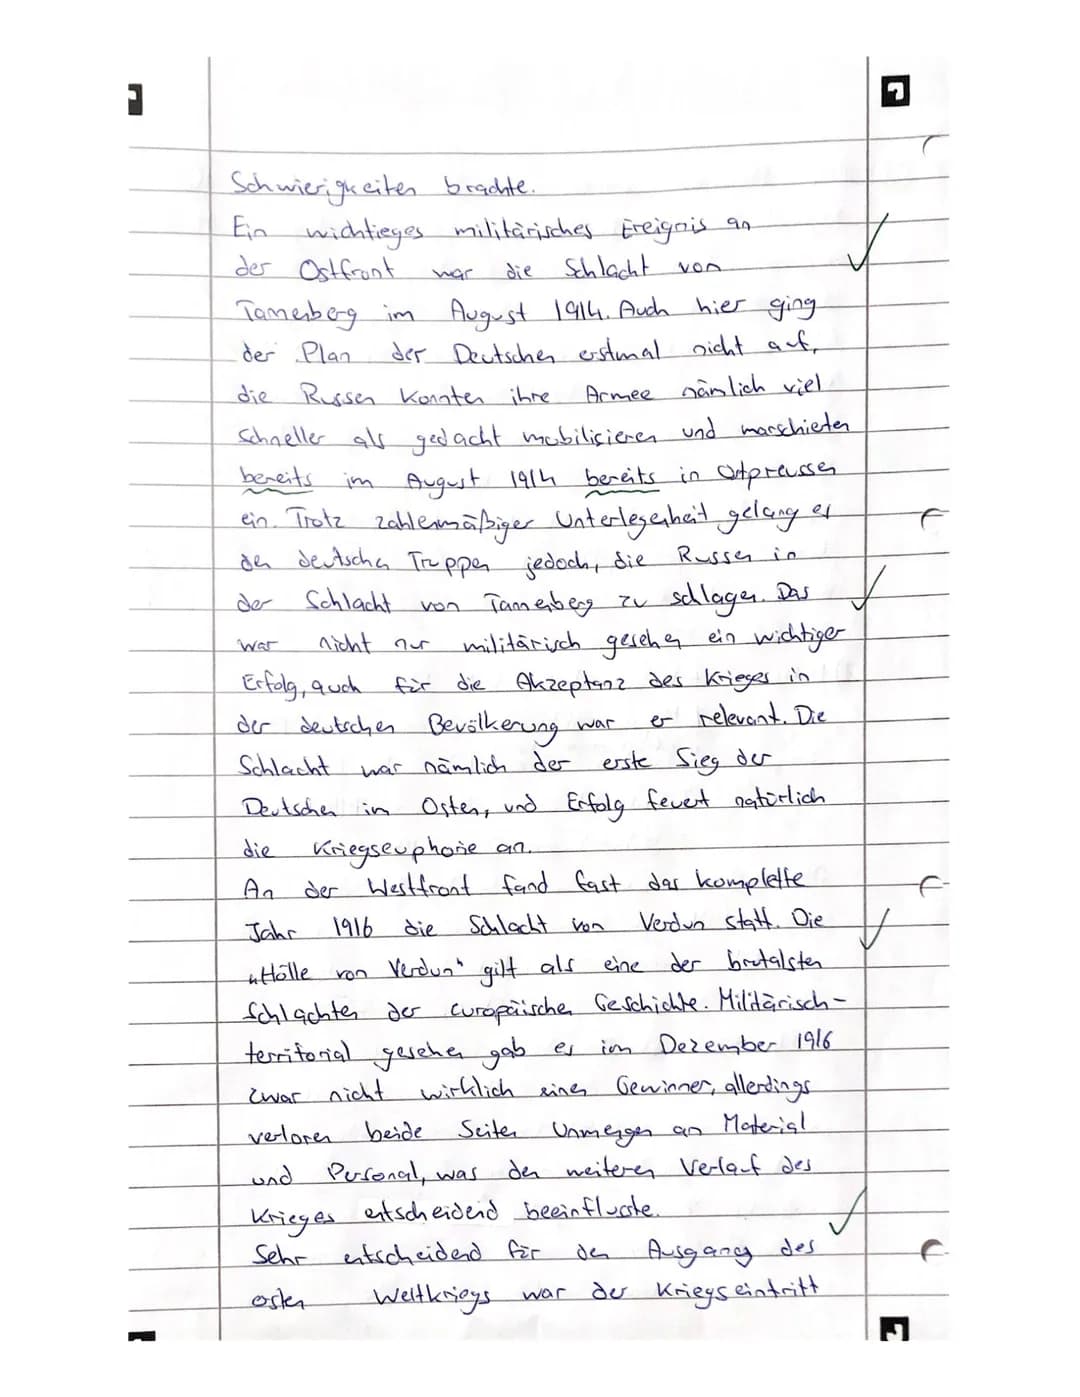 Schwierigkeiten brachte.
Ein wichtieges militärisches Ereignis an
der Ostfront war die Schlacht von
Tannenberg im August 1914. Auch hier ging
der Plan der Deutschen erstmal nicht auf,
die Russen konnten ihre Armee nämlich viel
schneller als gedacht mobilisieren und marschierten
bereits im August 1914 bereits in Ostpreussen
ein. Trotz zahlenmäßiger Unterlegenheit gelang es
den deutschen Truppen jedoch, die Russen in
der Schlacht von Tannenberg zu schlagen. Das
war nicht nur militärisch gesehen ein wichtiger
Erfolg, auch für die Akzeptanz des Krieges in
der deutschen Bevölkerung war er relevant. Die
Schlacht war nämlich der erste Sieg der
Deutschen im Osten, und Erfolg feuert natürlich
die Kriegseuphorie an.
An der Westfront fand fast das komplette
Jahr 1916 die Schlacht von Verdun statt. Die
„Hölle von Verdun“ gilt als eine der brutalsten
Schlachten der europäischen Geschichte. Militärisch-
territorial gesehen gab es im Dezember 1916
zwar nicht wirklich einen Gewinner, allerdings
verloren beide Seiten Unmengen an Material
und Personal, was den weiteren Verlauf des
Krieges entscheidend beeinflusste.
Sehr entscheidend für den Ausgang des
ersten Weltkriegs war der Kriegseintritt